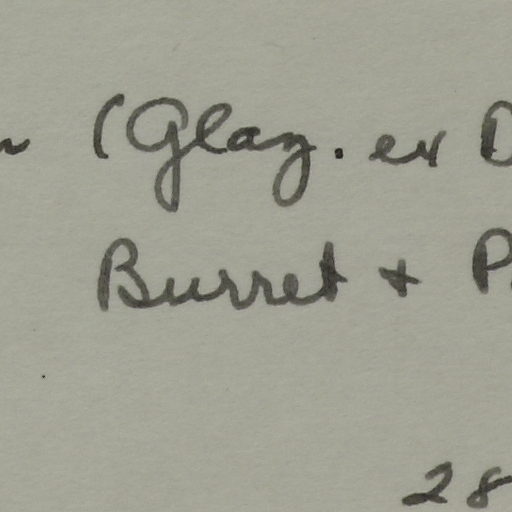 (Glaz. ex D
Burret + P
28